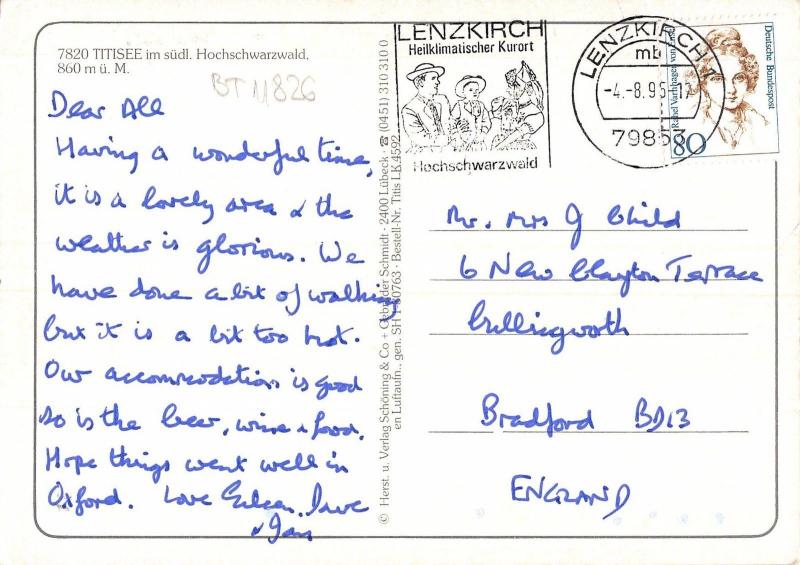 7820 TITISEE im südl. Hochschwarzwald,
860 m ü. M.
BT 11826
Dear All
Having a wonderful time,
it is a lovely area & the
weather is glorious. We
have done a bit of walking
but it is a bit too hot.
Our accommodation is good
so is the beer, wine & food.
Hope things went well in
Oxford. Love Eileen, Dave
& Ian
© Herst. u. Verlag Schöning & Co + Gebrüder Schmidt · 2400 Lübeck · ☎ (0451) 310 310 0
en Luftaufn., gen. SH 1-80763 · Bestell-Nr. Titis LK 4592
LENZKIRCH
Heilklimatischer Kurort
Hochschwarzwald
LENZKIRCH 1
mb
-4.-8.95-17
79853
Deutsche Bundespost
Rahel Varnhagen von Ense
80
Mr. Mrs J Child
6 New Clayton Terrace
Cullingworth
Bradford BD13
ENGLAND